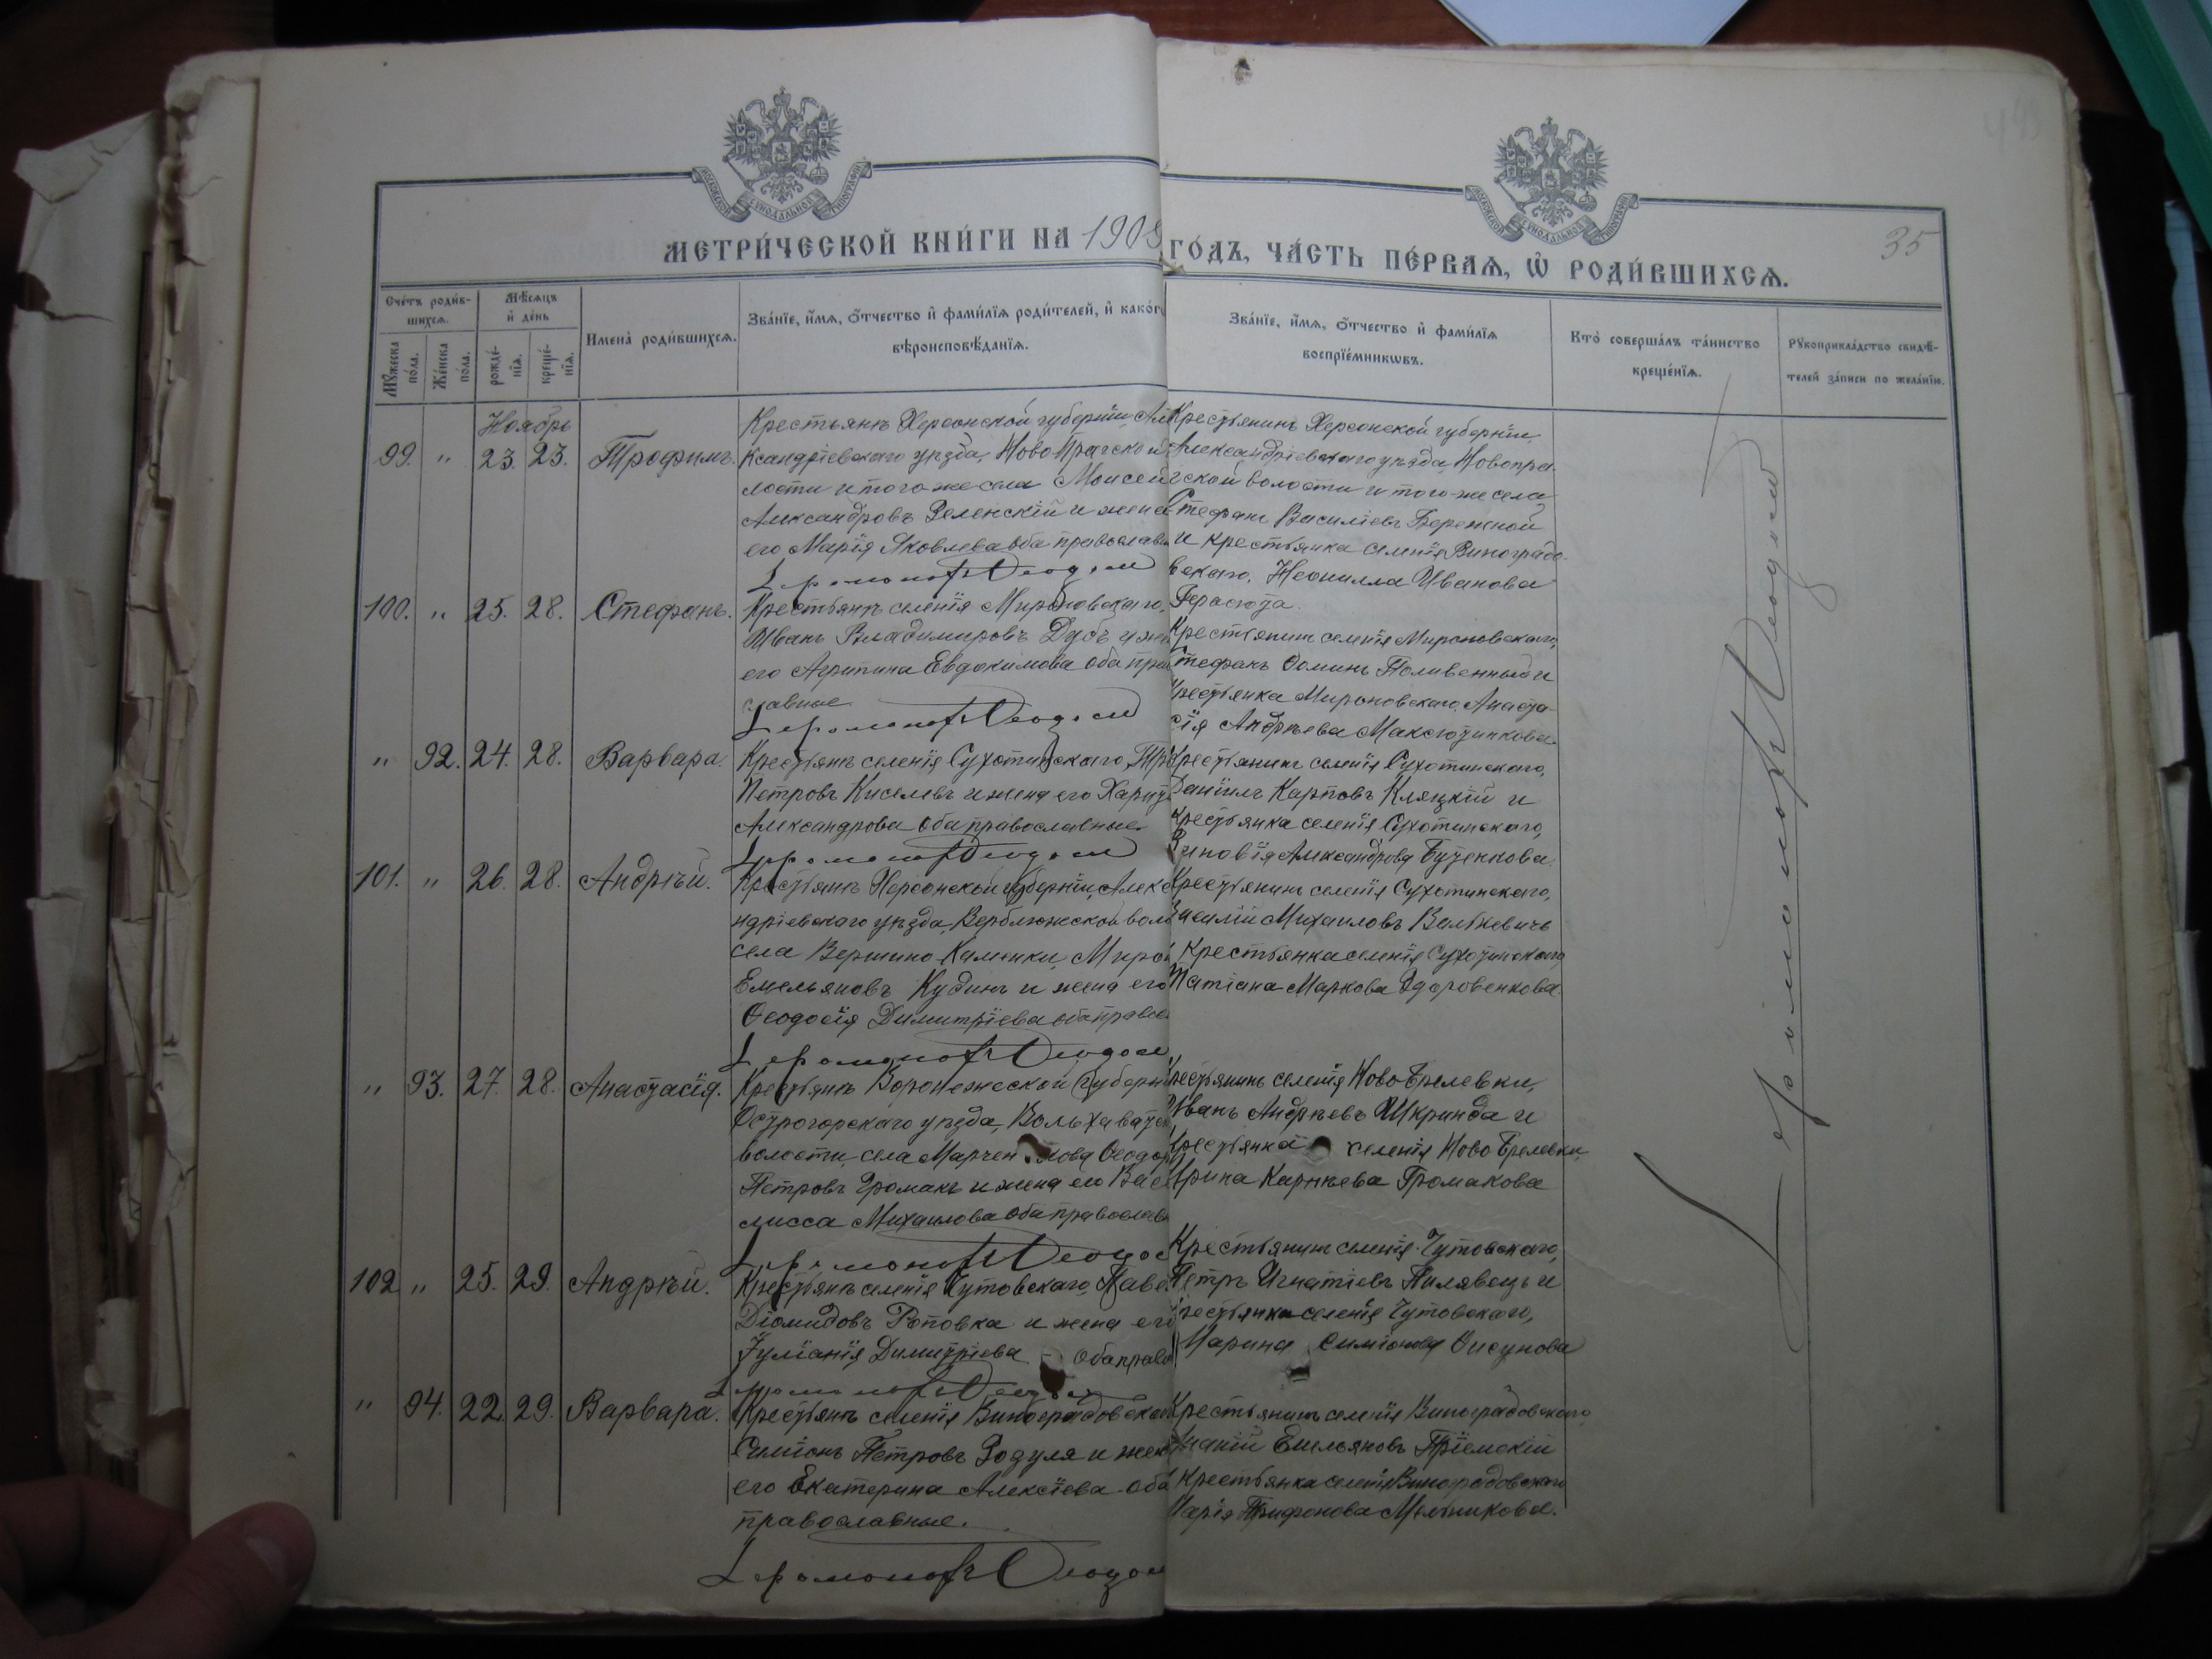 МЕТРИ́ЧЕСКОЙ КНИ́ГИ НА 1908
ГО́ДЪ, ЧА́СТЬ ПЕ́РВАѦ, Ѿ РОДИ́ВШИХСѦ.
35
Сче́тъ роди́в-
шихсѧ.
Мѣ́сѧцъ
и҆ де́нь
Мꙋ́жеска
по́ла.
Же́нска
по́ла.
рожде́-
нїѧ.
креще́-
нїѧ.
Имена̀ роди́вшихсѧ.
Зва́нїе, и҆́мѧ, ѻ҆́тчество и҆ фами́лїѧ роди́телей, и҆ како́гѡ
вѣроисповѣ́данїѧ.
Зва́нїе, и҆́мѧ, ѻ҆́тчество и҆ фами́лїѧ
воспрїе́мникѡвъ.
Кто̀ соверша́лъ та́инство
креще́нїѧ.
Рꙋкоприкла́дство свидѣ́-
телей за́писи по жела́нїю.
Ноябрь
99. " 23. 23. Трофимъ.
Крестьянъ Херсонской губерніи, Але
ксандріевскаго уѣзда, Ново-Прагской
лости и того же села Моисей
Александровъ Зеленскій и жена
его Марія Яковлева оба православн
Іеромонахъ Ѳеодосій
Крестьянинъ Херсонской губерніи,
Александріевскаго уѣзда, Новопра-
гской волости и того-же села
Стефанъ Василіевъ Бережной
и крестьянка селенія Виноградо-
вскаго, Неонилла Иванова
Герасюта.
100. " 25. 28. Стефанъ.
Крестьянъ селенія Мироновскаго,
Иванъ Владимировъ Дубъ и жен
его Агрипина Евдокимова оба прав
славные
Іеромонахъ Ѳеодосій
Крестьянинъ селенія Мироновскаго,
Стефанъ Ѳоминъ Поливенный и
крестьянка Мироновскаго, Анаста-
сія Андрѣева Максютинкова.
" 92. 24. 28. Варвара.
Крестьянъ селенія Сухотинскаго,
Петровъ Киселевъ и жена его Харит
Александрова оба православные.
Іеромонахъ Ѳеодосій
Крестьянинъ селенія Сухотинскаго,
Даніилъ Карповъ Кляцкій и
крестьянка селенія Сухотинскаго,
Зиновія Александрова Бутенкова.
101. " 26. 28. Андрѣй.
Крестьянъ Херсонской губерніи, Алекса
ндріевскаго уѣзда, Верблюжской вол
села Вершино-Каменки, Миро
Емельяновъ Кудинъ и жена его
Ѳеодосія Димитріева оба правос
Іеромонахъ Ѳеодосій
Крестьянинъ селенія Сухотинскаго,
Василій Михаиловъ Валькевичъ
крестьянка селенія Сухотинскаго,
Татіана Маркова Здоровенкова.
" 93. 27. 28. Анастасія.
Крестьянъ Воронежской губерн
Острогорскаго уѣзда, Вольхаватск
волости, села Марченкова Ѳеодор
Петровъ Громакъ и жена его Васи
лисса Михаилова оба православ
Іеромонахъ Ѳеодосій
Крестьянинъ селенія Ново Брелевки,
Иванъ Андрѣевъ Шкринда и
крестьянка селенія Ново Брелевки,
Ирина Карнѣева Громакова
102 " 25. 29. Андрѣй.
Крестьянъ селенія Чутовскаго, Паве
Діомидовъ Роповка и жена его
Іуліанія Димитріева - оба правос
Іеромонахъ Ѳеодосій
Крестьянинъ селенія Чутовскаго,
Петръ Игнатіевъ Пилявецъ и
крестьянка селенія Чутовскаго,
Марина Симіонова Оисунова
" 94. 22. 29. Варвара.
Крестьянъ селенія Виноградовскаг
Симіонъ Петровъ Зодуля и жена
его Екатерина Алексіева оба
православные.
Іеромонахъ Ѳеодосій
Крестьянинъ селенія Виноградовскаго,
Ананій Емельяновъ Пріемскій
крестьянка селенія Виноградовскаго
Марія Трифонова Мельникова.
Іеромонахъ Ѳеодосій